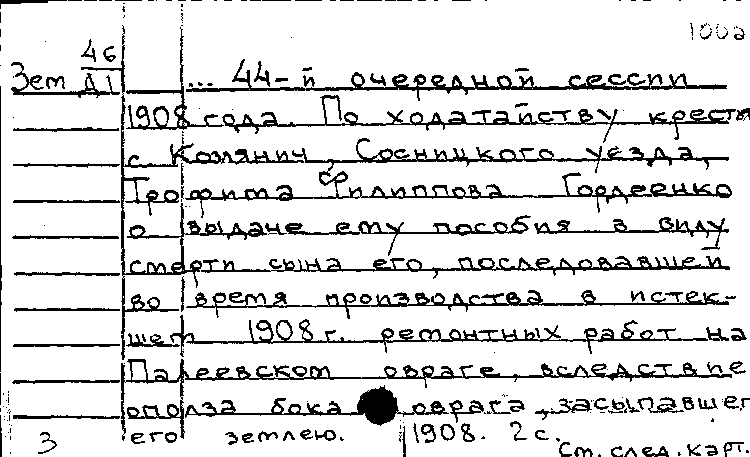 1002
Зем 46/Д1 ... 44-й очередной сессии
1908 года. По ходатайству крест
с. Козлянич, Сосницкого уезда,
Трофима Филиппова Гордеенко
о выдаче ему пособия в виду
смерти сына его, последовавшей
во время производства в истек-
шем 1908 г. ремонтных работ на
Палеевском овраге, вследствие
ополза бока оврага, засыпавшег
его землею. 1908. 2 с.
3 См. след. карт.